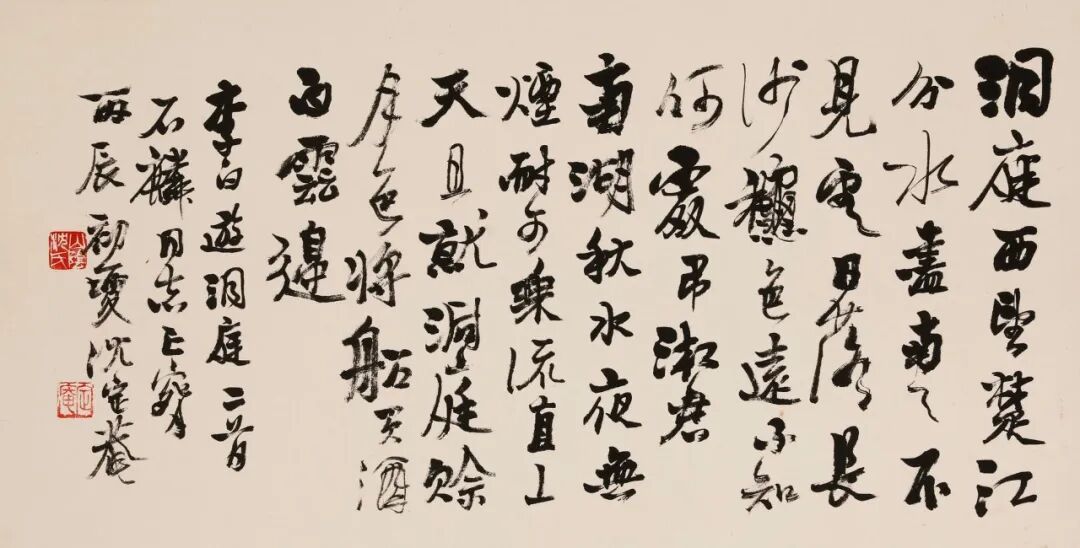 洞庭西望楚江
分水盡南天不
見雲日落長
沙龝色遠不知
何處弔湘君
南湖秋水夜無
煙耐可乘流直上
天且就洞庭賒
月色將船買酒
白雲邊
李白遊洞庭二首
石麟同志正
丙辰初夏沈定菴
山陰沈氏
定庵